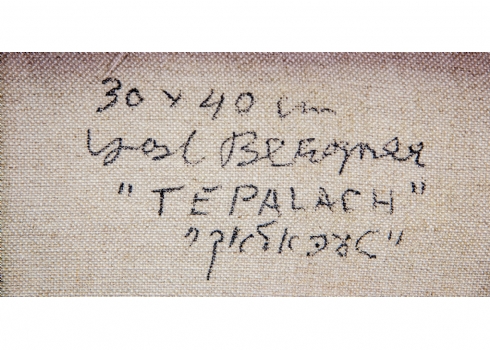 30 x 40 cm
Yosl Bergner
"TEPALACH"
"טעפאלאך"